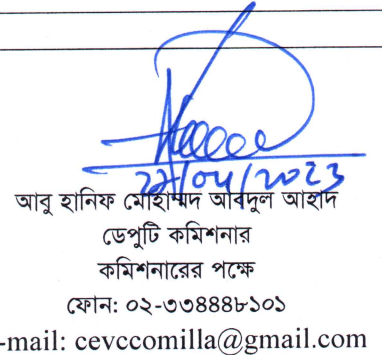 ২৭/০৮/২০২৩
আবু হানিফ মোহাম্মদ আবদুল আহাদ
ডেপুটি কমিশনার
কমিশনারের পক্ষে
ফোন: ০২-৩৩৪৪৪৮১০১
-mail: cevccomilla@gmail.com